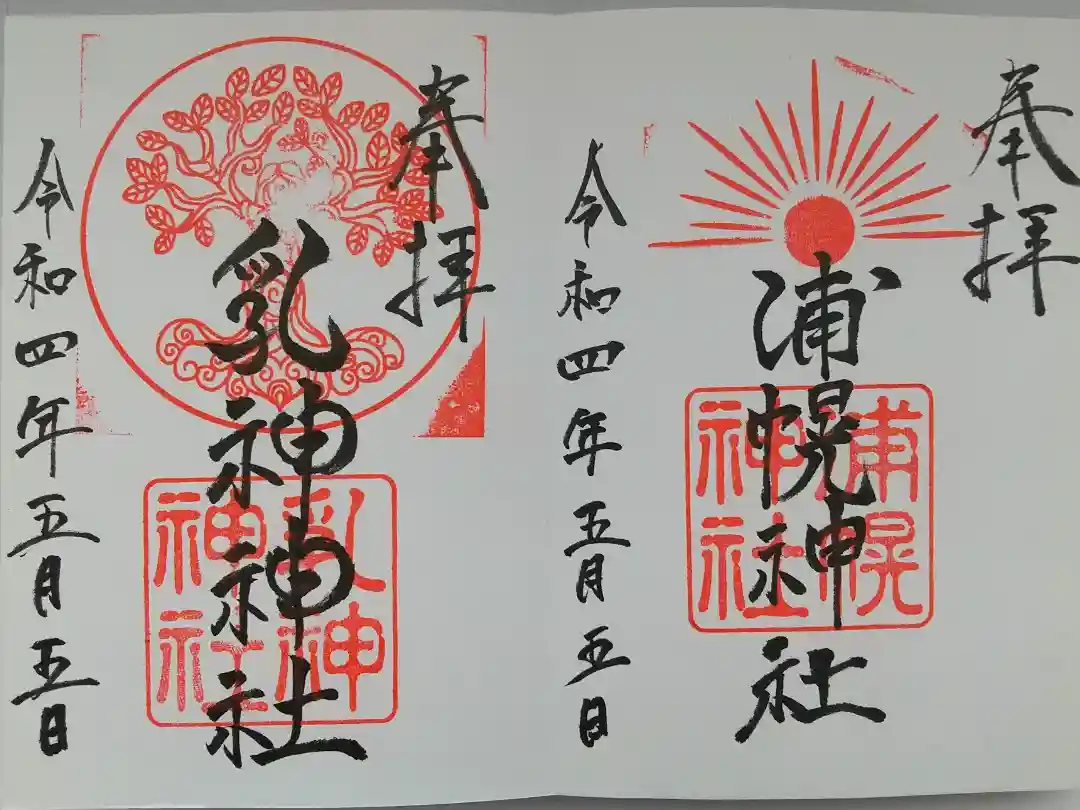 奉拝
浦幌神社
浦幌
神社
令和四年五月五日
奉拝
乳神神社
乳神
神社
令和四年五月五日